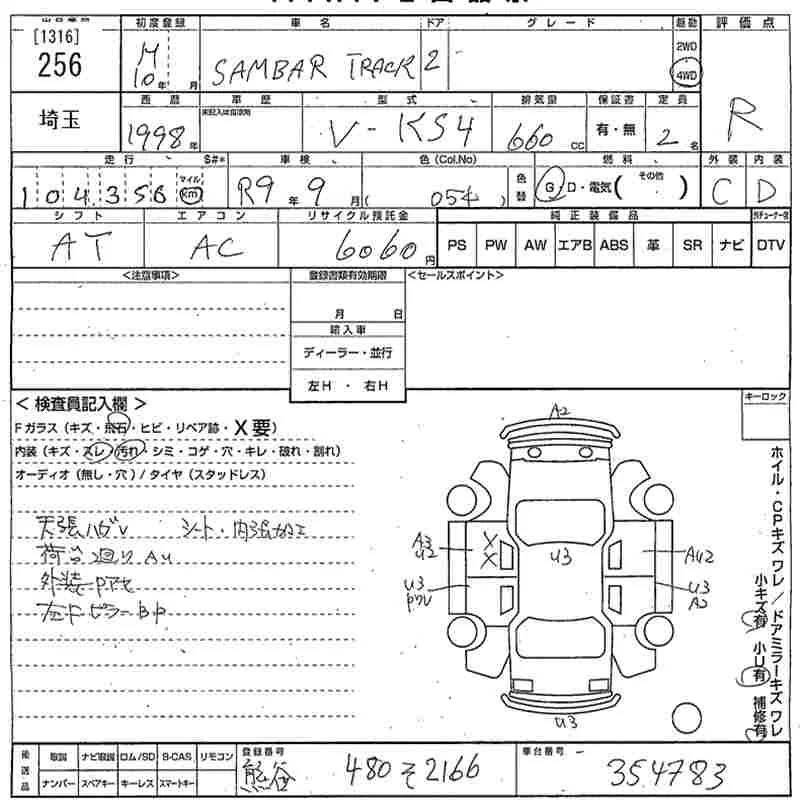 [1316]
256
初度登録 車名 ドア グレード 駆動 評価点
H 10年 月 SAMBAR TRACK 2 - 2WD 4WD R
埼玉
西暦 車歴 型式 排気量 保証書 定員
1998年 V-KS4 660 CC 有・無 2名
走行 S#* 車検 色(Col.No) 燃料 外装 内装
104356 マイル km R9年 9月 ( 054 ) 色替 G・D・電気( その他 ) C D
シフト エアコン リサイクル預託金 純正装備品
AT AC 6060円 PS PW AW エアB ABS 革 SR ナビ DTV
<注意事項> 登録書類有効期限 <セールスポイント>
月 日
輸入車
ディーラー・並行
左H ・ 右H
<検査員記入欄> キーロック
Fガラス(キズ・飛石・ヒビ・リペア跡・X要)
内装(キズ・スレ・汚れ・シミ・コゲ・穴・キレ・破れ・割れ)
オーディオ(無し・穴)/タイヤ(スタッドレス)
天張ハガレ シート・内張加工
荷台廻りAU
外装
左Fピラー BP
A2
A3 U2 X X U3 AU2
U3 U3 A2
U3
ホイル・CPキズ ワレ / ドアミラーキズ ワレ
小キズ有 小U有 補修有
後送品 取説 ナビ取説 ロム/SD B-CAS リモコン 登録番号 車台番号
ナンバー スペアキー キーレス スマートキー 熊谷 480 そ 2166 354783